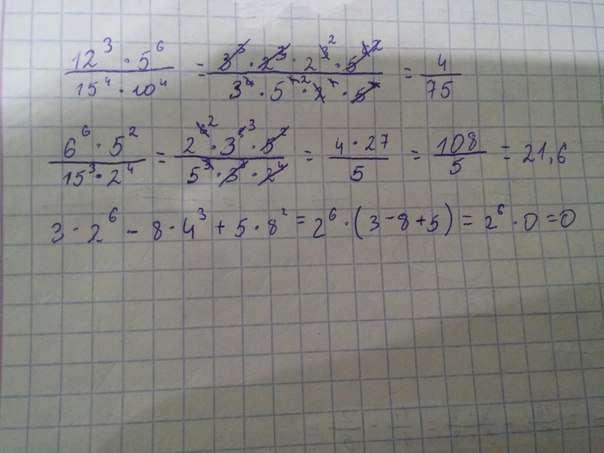 12³ · 5⁶ / 15⁴ · 10⁴ = 3³ · 2³ · 2³ ² · 5⁶ ² / 3⁴ · 5⁴ ² · 2⁴ · 5⁴ = 4 / 75
6⁶ · 5² / 15³ · 2⁴ = 2⁶ ² · 3⁶ ³ · 5² / 5³ · 3³ · 2⁴ = 4 · 27 / 5 = 108 / 5 = 21,6
3 · 2⁶ - 8 · 4³ + 5 · 8² = 2⁶ · (3 - 8 + 5) = 2⁶ · 0 = 0